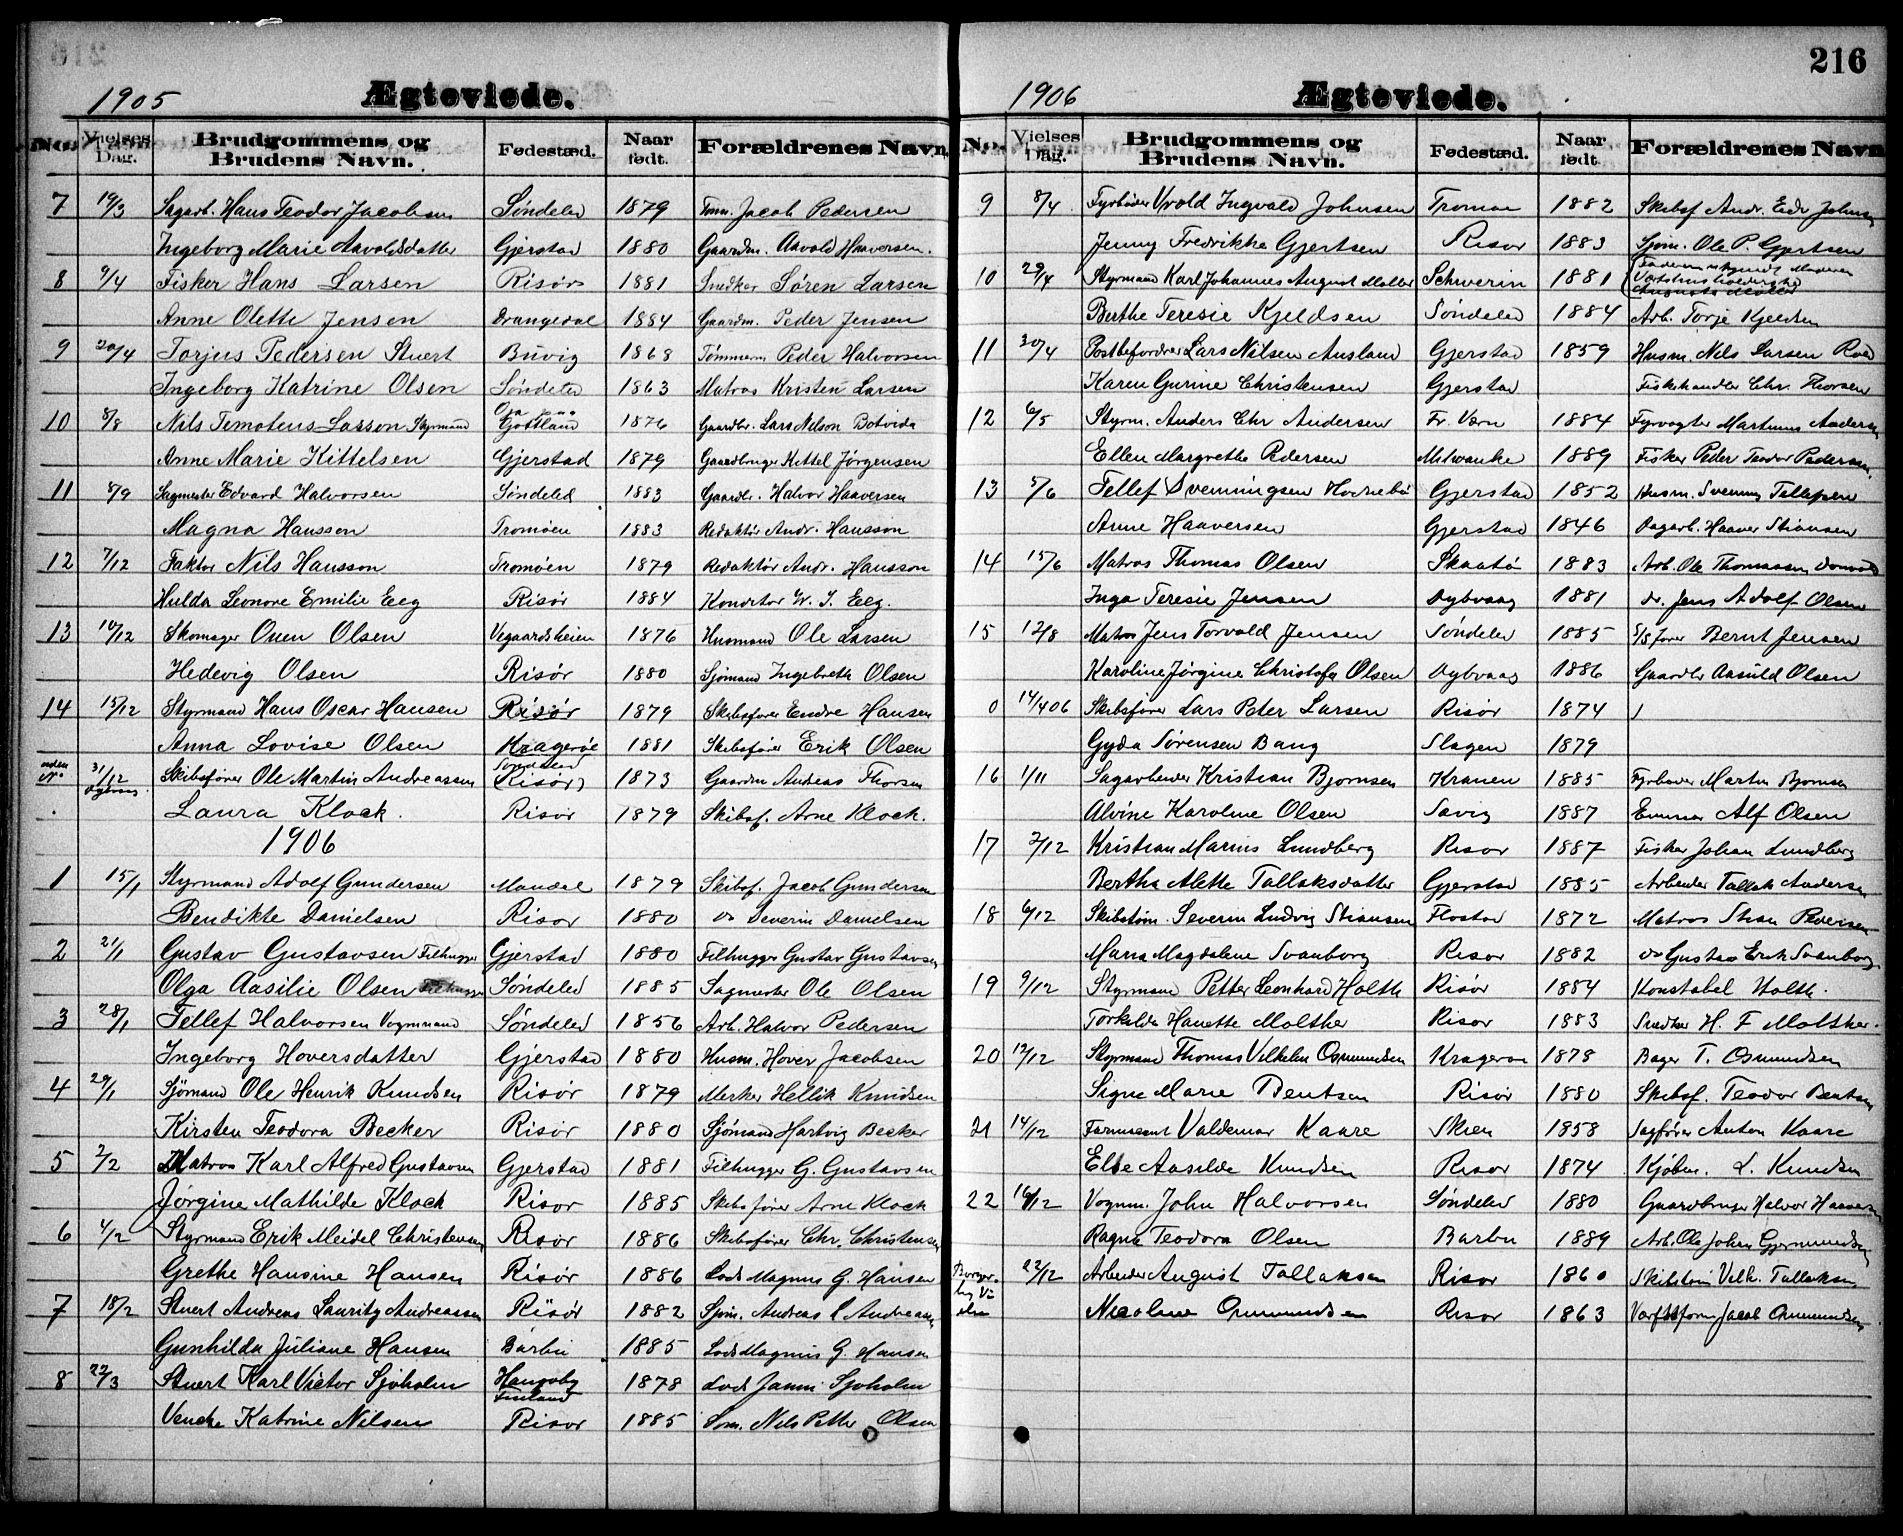 216
1905 Ægteviede.
No. Vielses Dag. Brudgommens og Brudens Navn. Fødestæd. Naar født. Forældrenes Navn.
7 19/3 Sagarb. Hans Teodor Jacobsen Søndeled 1879 Tmm. Jacob Pedersen
Ingeborg Marie Aavoldsdatter Gjerstad 1880 Gaardm. Aavold Haaversen.
8 9/4 Fisker Hans Larsen Risør 1881 Snedker Søren Larsen
Anne Olette Jensen Drangedal 1884 Gaardm. Peder Jensen
9 20/4 Torjus Pedersen Stuert Buvig 1868 Tømmerm Peder Halvorsen
Ingeborg Katrine Olsen Søndeled 1863 Matros Kristen Larsen
10 8/8 Nils Timoteus Larsson Styrmand Gottland 1876 Gaardbr. Lars Nelson Botvida
Anne Marie Kittelsen Gjerstad 1879 Gaardbruger Kittel Jørgensen
11 8/9 Sagmester Edvard Halvorsen Søndeled 1883 Gaardbr. Halvor Haaversen
Magna Hansson Tromøen 1883 Redaktør Andr. Hansson
12 7/12 Faktor Nils Hansson Tromøen 1879 Redaktør Andr. Hansson
Hulda Leonore Emilie Eeg Risør 1884 Konditor W. J. Eeg.
13 10/12 Skomager Ouen Olsen Vegaardsheien 1876 Husmand Ole Larsen
Hedevig Olsen Risør 1880 Sjømand Ingebreth Olsen
14 15/12 Styrmand Hans Oscar Hansen Risør 1879 Skibsfører Endre Hansen
Anna Lovise Olsen Kragerøe 1881 Skibsfører Erik Olsen
uden No 31/12 Skibsfører Ole Martin Andreassen Søndeled (Risør) 1873 Gaardm Andreas Thorsen
Laura Klock. Risør 1879 Skibsf. Arne Klock.
1906
1 15/1 Styrmand Adolf Gundersen Mandal 1879 Skibsf. Jacob Gundersen
Bendikte Danielsen Risør 1880 do Severin Danielsen
2 21/1 Gustav Gustavsen Filhugger Gjerstad 1880 Filhugger Gustav Gustavsen
Olga Aasilie Olsen Søndeled 1885 Sagmester Ole Olsen
3 28/1 Tellef Halvorsen Vognmand Søndeled 1856 Arb. Halvor Pedersen
Ingeborg Hoversdatter Gjerstad 1880 Husm. Hover Jacobsen
4 29/1 Sjømand Ole Henrik Knudsen Risør 1879 Merker Hellik Knudsen
Kirsten Teodora Becker Risør 1880 Sjømand Hartvig Becker
5 2/2 Matros Karl Alfred Gustavsen Gjerstad 1881 Filhugger G. Gustavsen
Jørgine Mathilde Klock Risør 1885 Skibsfører Arne Klock
6 4/2 Styrmand Erik Meidel Christensen Risør 1886 Skibsfører Chr. Christensen
Grethe Hansine Hansen Risør 1886 Lods Magnus G. Hansen
7 18/2 Stuert Andreas Lauritz Andreassen Risør 1882 Sjøm. Andreas C Andreasen
Gunhilda Juliane Hansen Barbu 1885 Lods Magnus G. Hansen
8 22/3 Stuert Karl Victor Sjøholm Finland 1878 Lods Janni Sjøholm
Venche Katrine Nilsen Risør 1885 Søm. Nils Petter Olsen
216
1906 Ægteviede.
No. Vielses Dag. Brudgommens og Brudens Navn. Fødestæd. Naar født Forældrenes Navn
9 8/4 Fyrbøder Vrold Ingvald Johnsen Tromøe 1882 Skibsf Andr. Johnsen
Jenny Fredrikke Gjertsen Risør 1883 Sjøm. Ole P. Gjertsen
10 29/4 Styrmand Karl Johannes August Møller Schwerin 1881 Augusta Møller
Berthe Teresie Kjeldsen Søndeled 1884 Arb. Torje Kjeldsen
11 30/4 Postbefordrer Lars Nilsen Ausland Gjerstad 1859 Husm. Nils Larsen Roed
Karen Gurine Christensen Gjerstad Fiskehandler Chr. Thorsen
12 6/5 Styrm. Anders Chr Andersen Fr. Værn 1884 Fyrvogter Martinus Andersen
Ellen Margrethe Pedersen Milwauke 1889 Fisker Peder Teodor Pedersen
13 5/6 Tellef Svenningsen Gjerstad 1852 Husm. Svening Tellefsen
Anne Haaversen Gjerstad 1846 Dagarb. Haaver Stiansen
14 15/6 Matros Thomas Olsen Skaatø 1883 Arb. Ole Thomassen
Inga Teresie Jensen Dybvaag 1881 do. Jens Adolf Olsen
15 12/8 Matros Jens Torvald Jensen Søndeled 1885 S/S fører Bernt Jensen
Karoline Jørgine Christofa Olsen Dybvaag 1886 Gaardbr Aasuld Olsen
0 14/4 06 Skibsfører Lars Peter Larsen Risør 1874
Gyda Sørensen Bang Slagen 1879
16 1/11 Sagarbeider Kristian Bjornsen Kranen 1885 Fyrbøder Martin Bjornsen
Alvine Karoline Olsen Søvig 1887 Alf Olsen
17 2/12 Kristian Marius Lundberg Risør 1887 Fisker Johan Lundberg
Bertha Alette Tallaksdatter Gjerstad 1885 Arbeider Tallak Andersen
18 6/12 Skibstøm. Severin Ludvig Stiansen Flostad 1872 Matros Stian Pedersen
Maria Magdalene Svanborg Risør 1882 do Gustav Erik Svanborg
19 9/12 Styrmand Petter Leonhard Holth Risør 1884 Konstabel Holth.
Torkilda Hanette Molther Risør 1883 Snedker H. F Molther.
20 12/12 Styrmand Thomas Vilhelm Osmundsen Kragerøe 1878 Bager T. Osmundsen
Signe Marie Bentsen Risør 1880 Skibsf. Teodor Bentsen
21 14/12 Farmaceut Valdemar Kaare Skien 1858 Sagfører Anton Kaare
Else Aasilde Knudsen Risør 1874 Kjøbm. L. Knudsen
22 16/12 Vognm. John Halvorsen Søndeled 1880 Gaardbruger Halvor Haaversen
Ragna Teodora Olsen Barbu 1889 Arb. Ole Johan Gjermundsen
Borgerlig Vielse 22/12 Arbeider August Tallaksen Risør 1860 Skibstøm Vilh. Tallaksen
Nicoline Omundsen Risør 1863 Værftsform. Jacob Omundsen